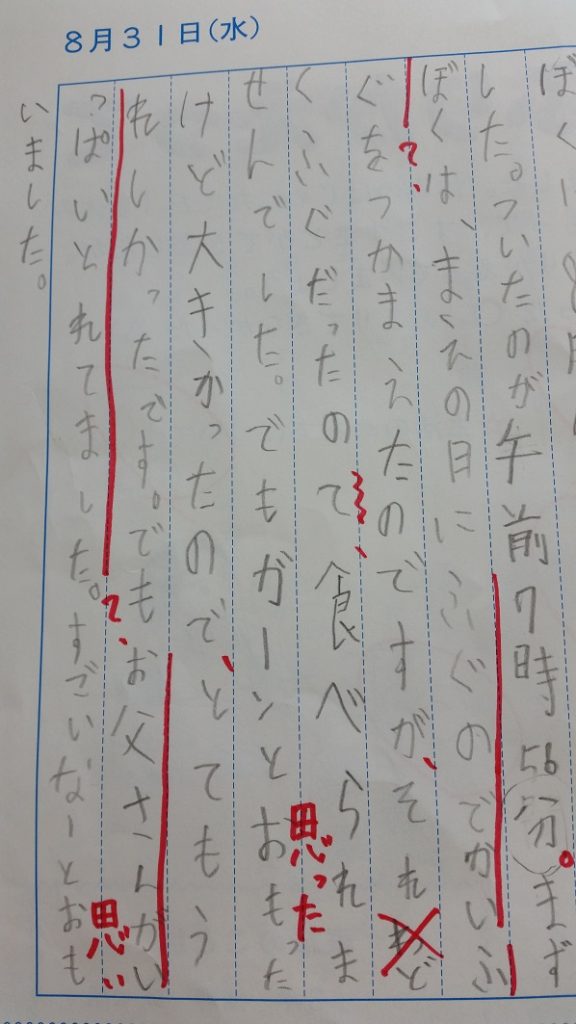 8月31日(水)
ぼく
した。ついたのが午前7時56分。まず
ぼくは、まえの日にふぐのでかいふ
ぐをつかまえたのですが、それど
くふぐだったのて、食べられま
せんでした。でもガーンとおもった
思った
けど大きかったので、とてもう
れしかったです。でもお父さんがい
っぱいとれてました。すごいなーとおも
思い
いました。
?、
?、